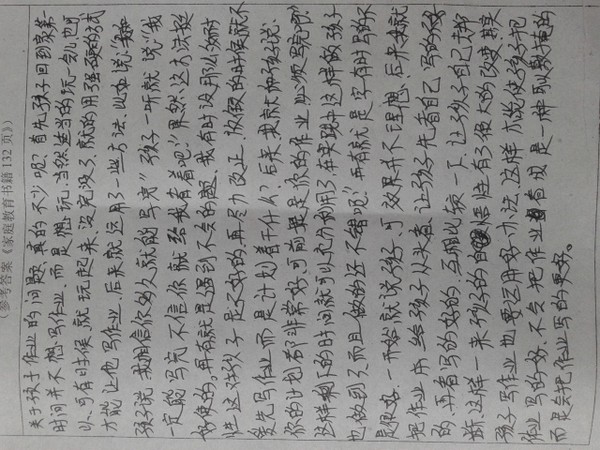 (参考答案《家庭教育书籍132页》)
关于孩子作业的问题,真的不少呢?首先,孩子回到家第一
时间并不想写作业,而是想玩,当然适当的玩一会儿也可
以,可有时候,就玩起来没完没了,就的用强硬的方式
才能让他写作业,后来就运用了一些方法,比如说:"
孩子说,我相信你多久就能写完"孩子一听就说"我
一定能写完,不信你就给我看着吧"果然,这方法挺
好使的。再有就是遇到不会的题,我有时没那么多耐
性,这让孩子是不好的,再尽力改正,放假的时候就不
先写作业而是计划着干什么?后来,我就和孩子说:
你的计划都非常好,可前提是你的作业必须写完呀!
这样剩下的时间就可以充分利用了,在实践中这样做孩子
也做到了,而且做的还不错呢!"再有就是字有时写的不
是很好,一开始就说孩子,可效果并不理想,后来我就
把作业本给孩子从头查,让孩子先看自己写的
的,再看写的好的,互相比较一下,让孩子自己去判
断这样一来孩子的自性有了很大的改变,其实
孩子写作业也要运用好办法,这样才能使孩子把
作业写的好,不会把作业看成是一种可以敷衍的
而是会把作业写的更好。